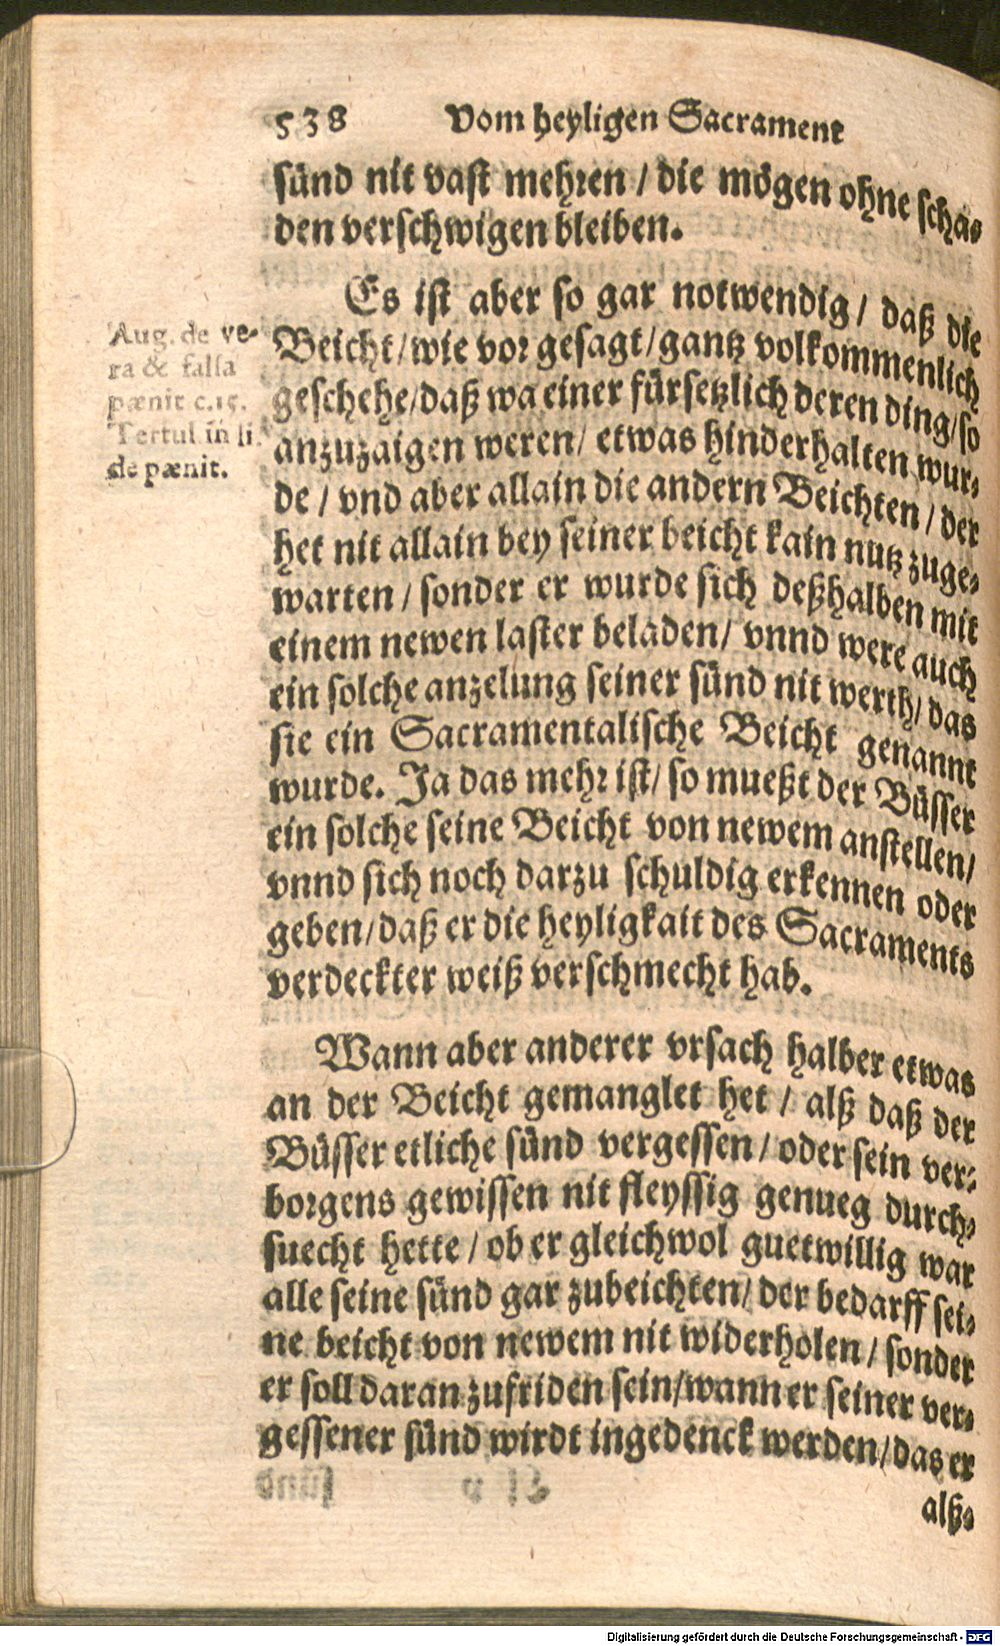 538 Vom heyligen Sacrament
sünd nit vast mehren / die mögen ohne scha⸗
den verschwigen bleiben.
Es ist aber so gar notwendig / daß die
Beicht / wie vor gesagt / gantz volkommenlich
geschehe / daß wa einer fürsetzlich deren ding / so
anzuzaigen weren / etwas hinderhalten wur⸗
de / vnd aber allain die andern Beichten / der
het nit allain bey seiner beicht kain nutz zuge⸗
warten / sonder er wurde sich deßhalben mit
einem newen laster beladen / vnnd were auch
ein solche anzelung seiner sünd nit werth / das
sie ein Sacramentalische Beicht genannt
wurde. Ja das mehr ist / so mueßt der Büsser
ein solche seine Beicht von newem anstellen /
vnnd sich noch darzu schuldig erkennen oder
geben / daß er die heyligkait des Sacraments
verdeckter weiß verschmecht hab.
Wann aber anderer vrsach halber etwas
an der Beicht gemanglet het / alß daß der
Büsser etliche sünd vergessen / oder sein ver⸗
borgens gewissen nit fleyssig genueg durch⸗
suecht hette / ob er gleichwol guetwillig war
alle seine sünd gar zubeichten / der bedarff sei⸗
ne beicht von newem nit widerholen / sonder
er soll daran zufriden sein / wann er seiner ver⸗
gessener sünd wirdt ingedenck werden / das er
alß⸗
Aug. de ve-
ra & falsa
pænit c.15.
Tertul in li.
de pænit.
Digitalisierung gefördert durch die Deutsche Forschungsgemeinschaft - DFG